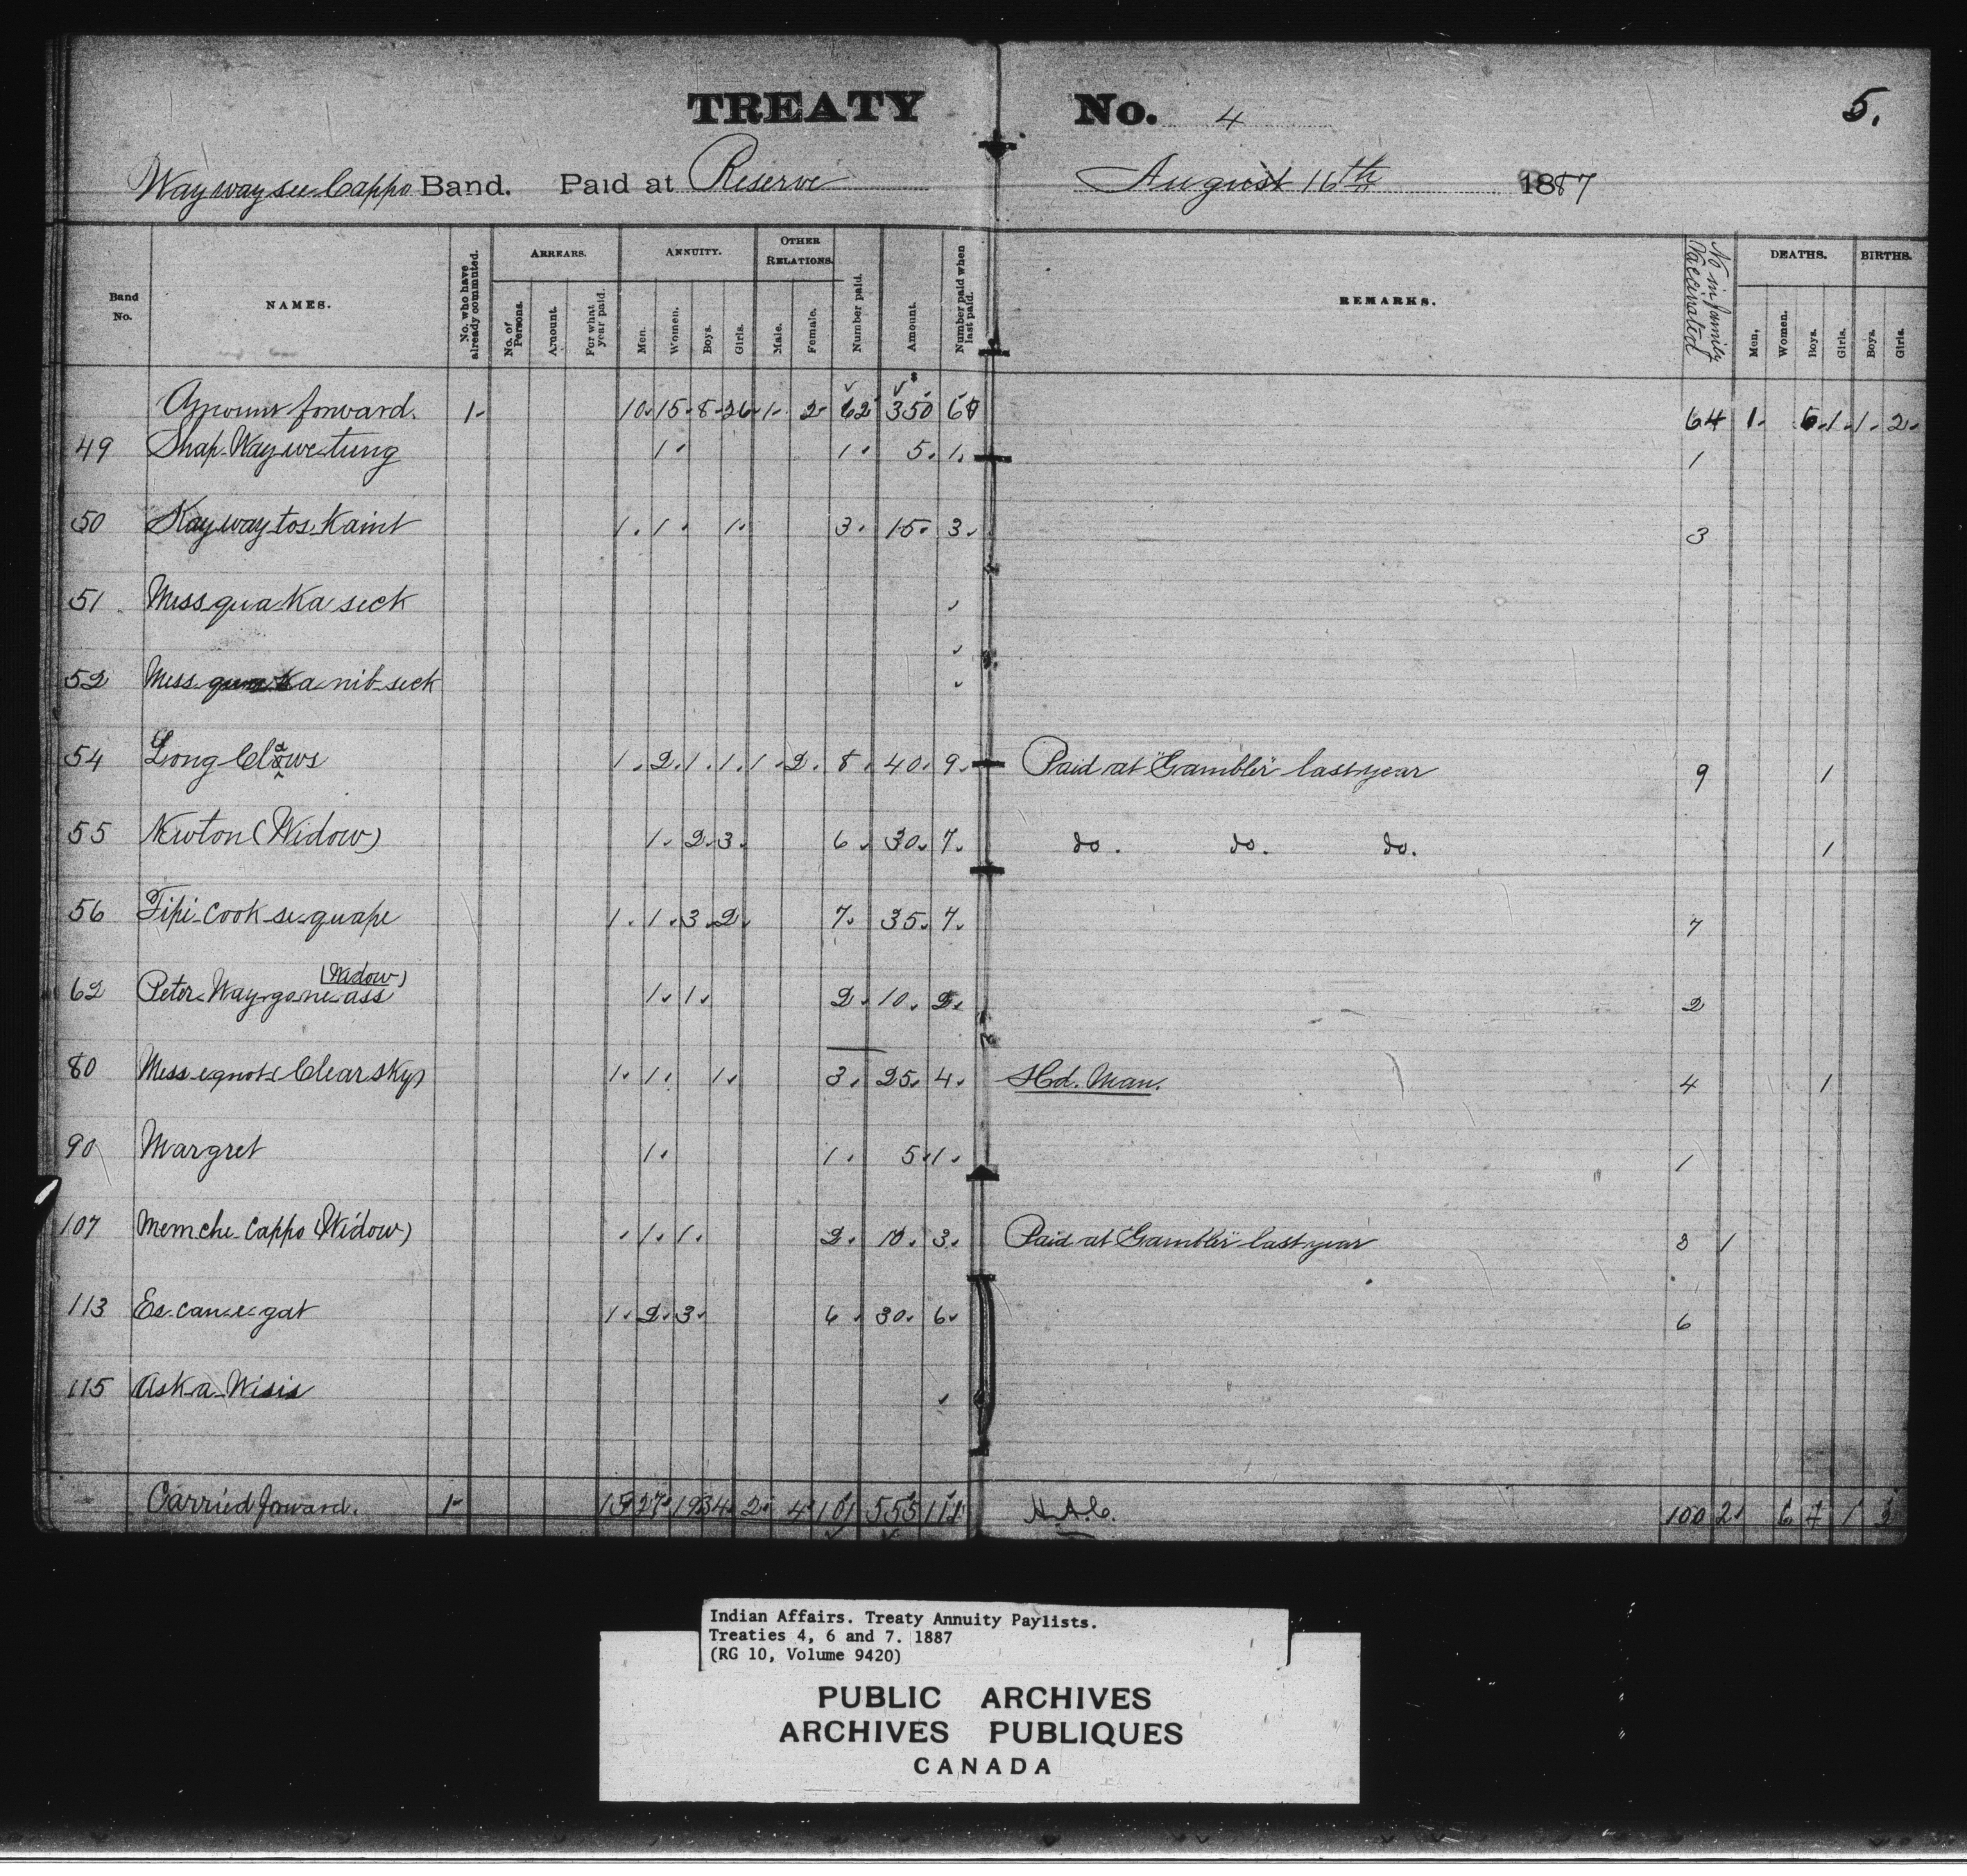 TREATY No. 4 5.
Way way see Cappo Band. Paid at Reserve August 16th 1887
Band No. NAMES. No. who have already commuted. ARREARS. No. of Persons. Amount. For what year paid. ANNUITY. Men. Women. Boys. Girls. OTHER RELATIONS. Male. Female. Number paid. Amount. Number paid when last paid. REMARKS. No in family Vaccinated DEATHS. Men. Women. Boys. Girls. BIRTHS. Boys. Girls.
Amount forward. 1- 10. 15. 8. 26. 1. 2. 62 350 68 64 1. 5. 1. 1. 2.
49 Shap-Way-we-tung 1. 1. 5. 1. 1
50 Kay way tos Kaint 1. 1. 1. 3. 15. 3. 3
51 Miss qua Ka seck
52 Miss Ka nib seck
54 Long Claws 1. 2. 1. 1. 1. 2. 8. 40. 9. Paid at "Gambler" last year 9 1
55 Newton (Widow) 1. 2. 3. 6. 30. 7. do. do. do. 1
56 Tipi-cook-se-quape 1. 1. 3. 2. 7. 35. 7. 7
62 Peter Way-go-ne-ass (Widow) 1. 1. 2. 10. 2. 2
80 Miss-e-quot (Clear sky) 1. 1. 1. 3. 25. 4. Hd. Man. 4 1
90 Margret 1. 1. 5. 1. 1
107 Memche Cappo (Widow) 1. 1. 2. 10. 3. Paid at "Gambler" last year 3 1
113 Es-can-e-gat 1. 2. 3. 6. 30. 6. 6
115 Ask-a-Wisis
Carried forward. 1- 15 27 19 34 2 4 101 555 111 100 2 6 4 1 2
Indian Affairs. Treaty Annuity Paylists.
Treaties 4, 6 and 7. 1887
(RG 10, Volume 9420)
PUBLIC ARCHIVES
ARCHIVES PUBLIQUES
CANADA